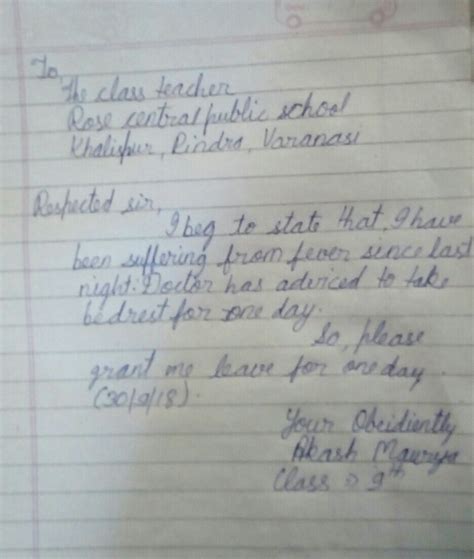 To,
The class teacher
Rose central public school
Khalispur, Pindra, Varanasi
Respected sir,
I beg to state that, I have
been suffering from fever since last
night. Doctor has adviced to take
bedrest for one day.
So, please
grant me leave for one day.
(30/9/18).
Your Obeidiently
Akash Maurya
Class → 9th